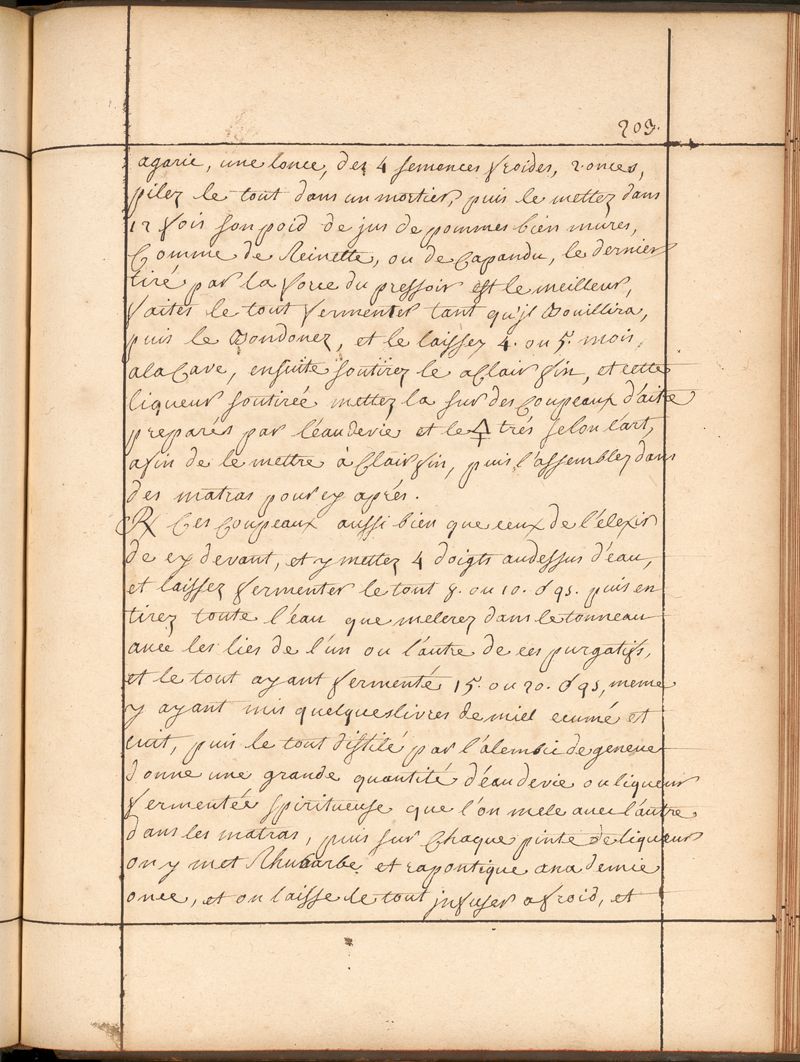 203.
agaric, une lonce, des 4 semences froides, 2. onces,
pilez le tout dans un mortier, puis le mettez dans
12 fois son poid de jus de pommes bien mures,
Comme de Reinette, ou de Capandu, le dernier
tiré par la force du pressoir est le meilleur,
faites le tout fermenter tant qu'jl Bouillira,
puis le Bondonez, et le laissez 4. ou 5. mois,
a la Cave, ensuite soutirez le a Clair fin, et cette
liqueur soutirée mettez la sur des Coupeaux d'aitre
preparés par l'eau de vie et le 🜍 trés selon l'art,
afin de le mettre à Clair fin, puis l'assemblez dans
des matras pour cy aprés.
℞ Ces Coupeaux aussi bien que ceux de l'elexir
de cy devant, et y mettez 4 doigts au dessus d'eau,
et laissez fermenter le tout 8. ou 10. jrs. puis en
tirez toute l'éau que melerez dans le tonneau
avec les lies de l'un ou l'autre de ces purgatifs,
et le tout ayant fermenté 15. ou 20. jrs, meme
y ayant mis quelques livres de miel ecumé et
cuit, puis le tout distilé par l'alembic de geneve
donne une grande quantité d'éau de vie ou liqueur
fermentée spiritueuse que l'on mele avec l'autre
dans les matras, puis sur Chaque pinte de liqueur
on y met Rhubarbe et rapontique ana demie
once, et on laisse le tout jnfuser a froid, et